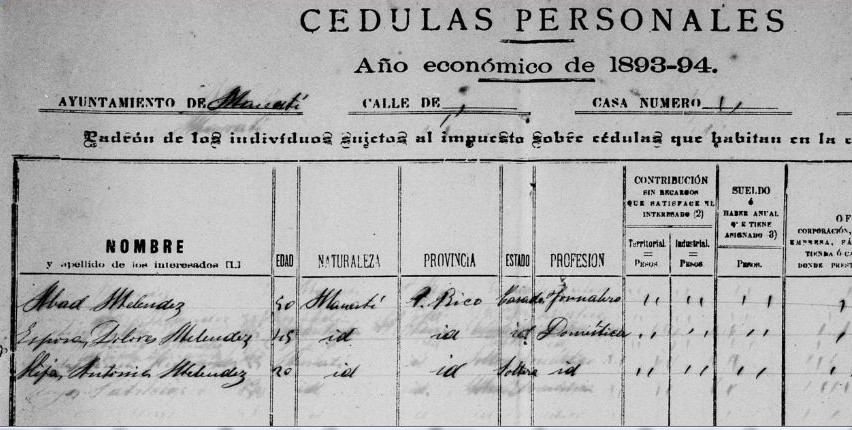 CEDULAS PERSONALES
Año económico de 1893-94.
AYUNTAMIENTO DE Manatí CALLE DE " CASA NUMERO "
Padrón de los individuos sujetos al impuesto sobre cédulas que habitan en la c
NOMBRE
y apellido de los interesados [1.]
EDAD
NATURALEZA
PROVINCIA
ESTADO
PROFESION
CONTRIBUCIÓN
SIN RECARGOS
QUE SATISFACE EL
INTERESADO (2)
Territorial. Industrial.
= =
PESOS. PESOS.
SUELDO
ó
HABER ANUAL
QUE TIENE
ASIGNADO 3)
PESOS.
OF
CORPORACIÓN,
EMPRESA, FÁ
TIENDA Ó CA
DONDE PREST
Abad Melendez 50 Manatí P. Rico Casado Jornalero " " " "
Esposa, Dolores Melendez 45 id id id Doméstica " " " "
Hija, Antonia Melendez 20 id id Soltera id " " " "